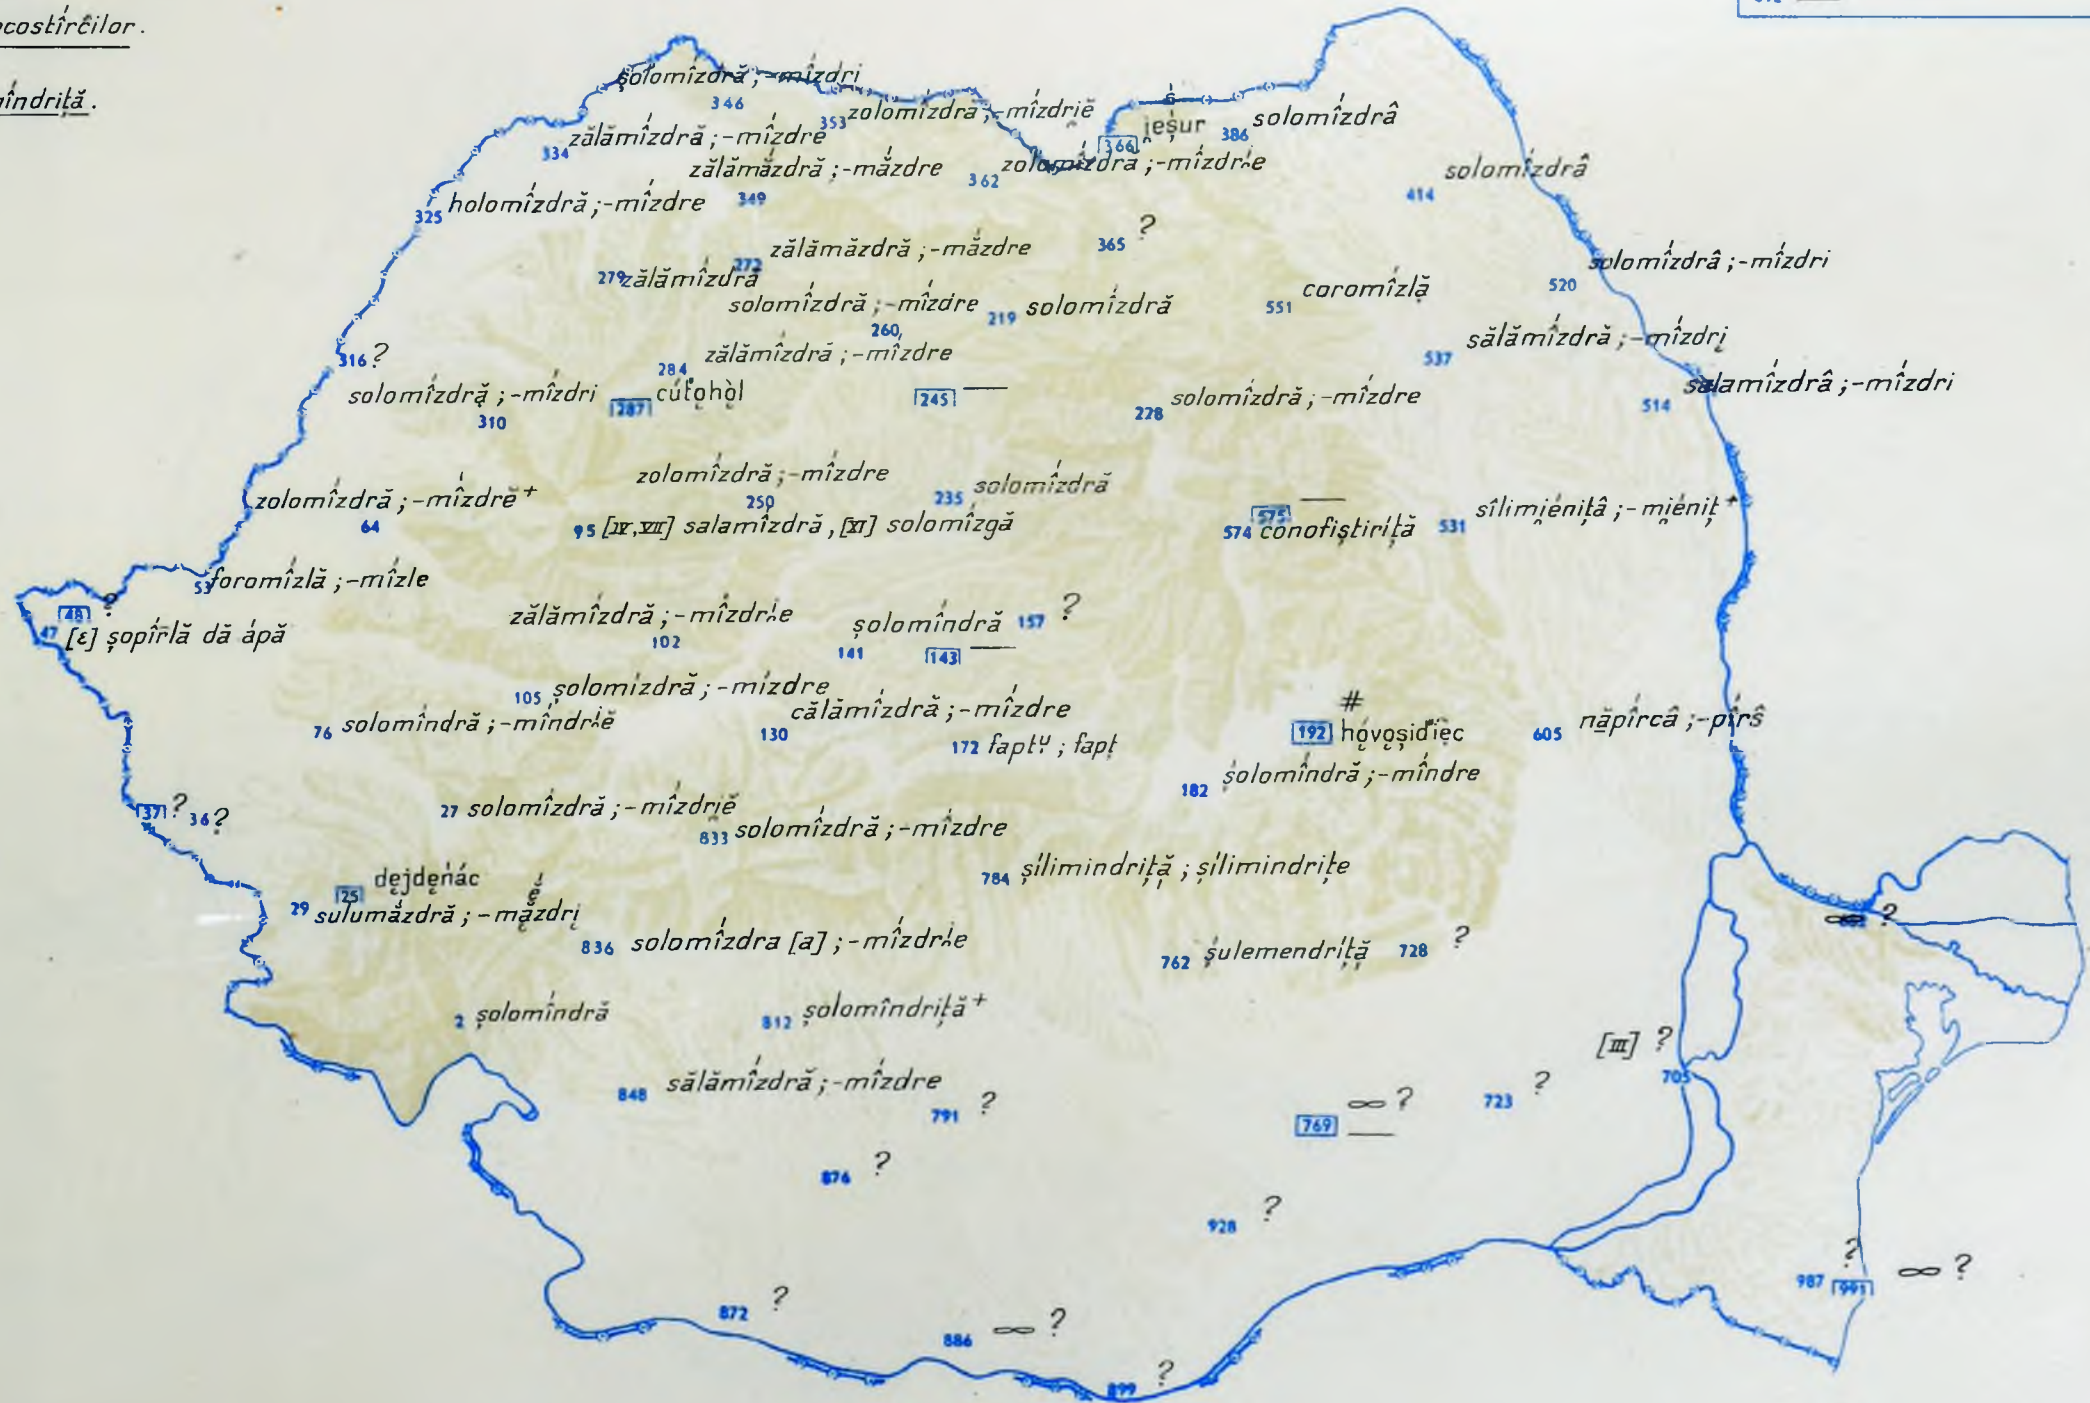 costîŕčilor.
îndriță.
șolomî́zdră ; -mî́zdri
346
353 zolomî́zdră ; -mî́zdrie
366 ieșur
386 solomî́zdrâ
334 zălămî́zdră ; -mî́zdre
zălămắzdră ; -mắzdre
349
362 zolomî́zdră ; -mî́zdrie
414 solomî́zdrâ
325 holomî́zdră ; -mî́zdre
365 ?
272 zălămăzdră ; -mắzdre
279 zălămî́zdră
520 solomî́zdrâ ; -mî́zdri
solomî́zdră ; -mî́zdre
260
219 solomî́zdră
551 coromî́zlă
537 sălămî́zdră ; -mî́zdri
316 ?
284 zălămî́zdră ; -mî́zdre
solomî́zdră ; -mî́zdri
310
287 cútohòl
245 —
228 solomî́zdră ; -mî́zdre
514 salamî́zdrâ ; -mî́zdri
zolomî́zdră ; -mî́zdre
250
235 solomî́zdră
zolomî́zdră ; -mî́zdrĕ +
64
575 —
531 sîlimiéniță ; -miéniț +
95 [IV, VII] salamî́zdră, [XI] solomî́zgă
574 conofiștiríță
53 foromî́zlă ; -mî́zle
48 ?
47 [ε] șopî́rlă dă ápă
zălămî́zdră ; -mî́zdrie
102
șolomî́ndră
141
157 ?
143 —
105 șolomî́zdră ; -mî́zdre
76 solomî́ndră ; -mî́ndrie
călămî́zdră ; -mî́zdre
130
172 faptᵘ ; fapț
#
192 hóvoșidiec
605 năpî́rcâ ; -pî́rŝ
182 șolomî́ndră ; -mî́ndre
37 ? 36 ?
27 solomî́zdră ; -mî́zdrie
833 solomî́zdră ; -mî́zdre
784 șílimindriță ; șílimindrițe
25 dejdenác
29 sulumắzdră ; -mắzdri
836 solomî́zdra [a] ; -mî́zdrie
762 șulemendríță
728 ?
∞ ?
2 șolomî́ndră
812 șolomî́ndriță +
[III] ?
705
848 sălămî́zdră ; -mî́zdre
791 ?
∞ ?
769 —
723 ?
876 ?
928 ?
987 ? 991 ∞ ?
872 ?
886 ∞ ?
899 ?